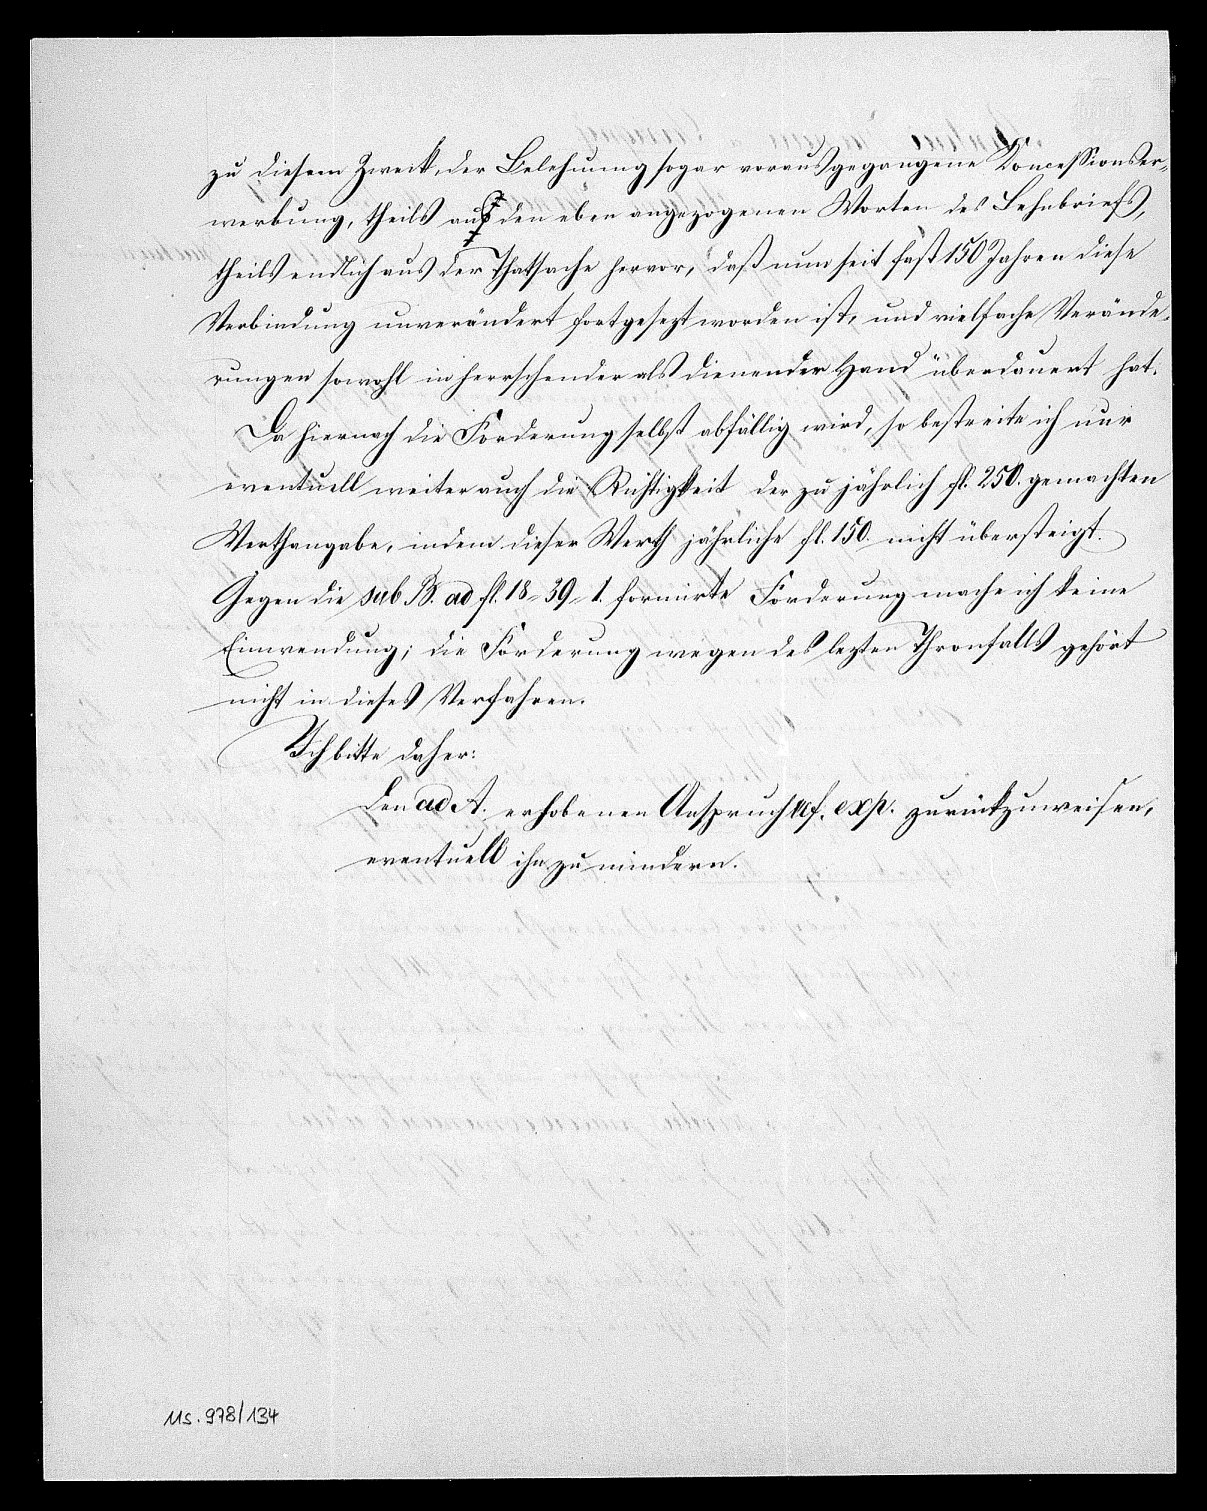 zu diesem Zweck, der Belehnung sogar vorausgegangene Koncessionser-
werbung, theils aus den eben angezogenen Worten des Lehnbriefs,
theils endlich aus der Thatsache hervor, daß nun seit fast 150 Jahren diese
Verbindung unverändert fortgesezt worden ist, und vielfache Verände-
rungen sowohl in herrschender als dienender Hand überdauert hat.
Da hiernach die Forderung selbst abfällig wird, so bestreite ich nur
eventuell weiter auch die Richtigkeit der zu jährlich fl. 250. gemachten
Werthangabe, indem dieser Werth jährliche fl. 150. nicht übersteigt.
Gegen die sub B. ad fl. 18 - 39 - 1. formirte Forderung mache ich keine
Einwendung; die Forderung wegen des lezten Thronfalls gehört
nicht in dieses Verfahren.
Ich bitte daher:
den ad A. erhobenen Anspruch ref. exp. zurückzuweisen,
eventuell ihn zu mindern.
Ms. 978/134